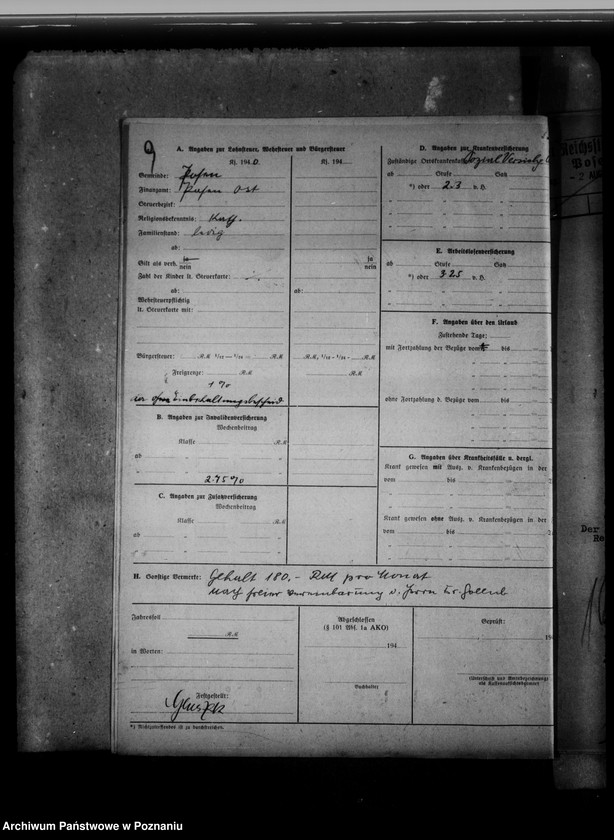 9
A. Angaben zur Lohnsteuer, Wehrsteuer und Bürgersteuer
Rj. 1940.
Rj. 194
Gemeinde: Posen
Finanzamt: Posen Ost
Steuerbezirk:
Religionsbekenntnis: Kath.
Familienstand: ledig
ab:
Gilt als verh. ja
nein
ja
nein
Zahl der Kinder lt. Steuerkarte:
ab:
ab:
Wehrsteuerpflichtig
lt. Steuerkarte mit:
Bürgersteuer: RM
RM
RM
Freigrenze: RM
RM
1%
B. Angaben zur Invalidenversicherung
Wochenbeitrag
Klasse RM
ab
2.75%
C. Angaben zur Zusatzversicherung
Wochenbeitrag
Klasse RM
ab
D. Angaben zur Krankenversicherung
Zuständige Ortskrankenkasse
ab Stufe Satz
*) oder 2.3 v. H.
E. Arbeitslosenversicherung
ab Stufe Satz
*) oder 3.25 v. H.
F. Angaben über den Urlaub
Zustehende Tage:
mit Fortzahlung der Bezüge vom bis
ohne Fortzahlung d. Bezüge vom bis
G. Angaben über Krankheitsfälle u. dergl.
Krank gewesen mit Ausz. v. Krankenbezügen in der
vom bis
Krank gewesen ohne Ausz. v. Krankenbezügen in der
vom bis
H. Sonstige Vermerke: Gehalt 180.- RM pro Monat
nach freier Vereinbarung
Jahressoll
RM
in Worten:
Festgestellt:
Abgeschlossen
(§ 101 Abs. 1a AKO)
194
Buchhalter
Geprüft:
194
(Unterschrift und Amtsbezeichnung
als Kassenaufsichtsbeamter)
*) Nichtzutreffendes ist zu durchstreichen.
Der
Re
Archiwum Państwowe w Poznaniu